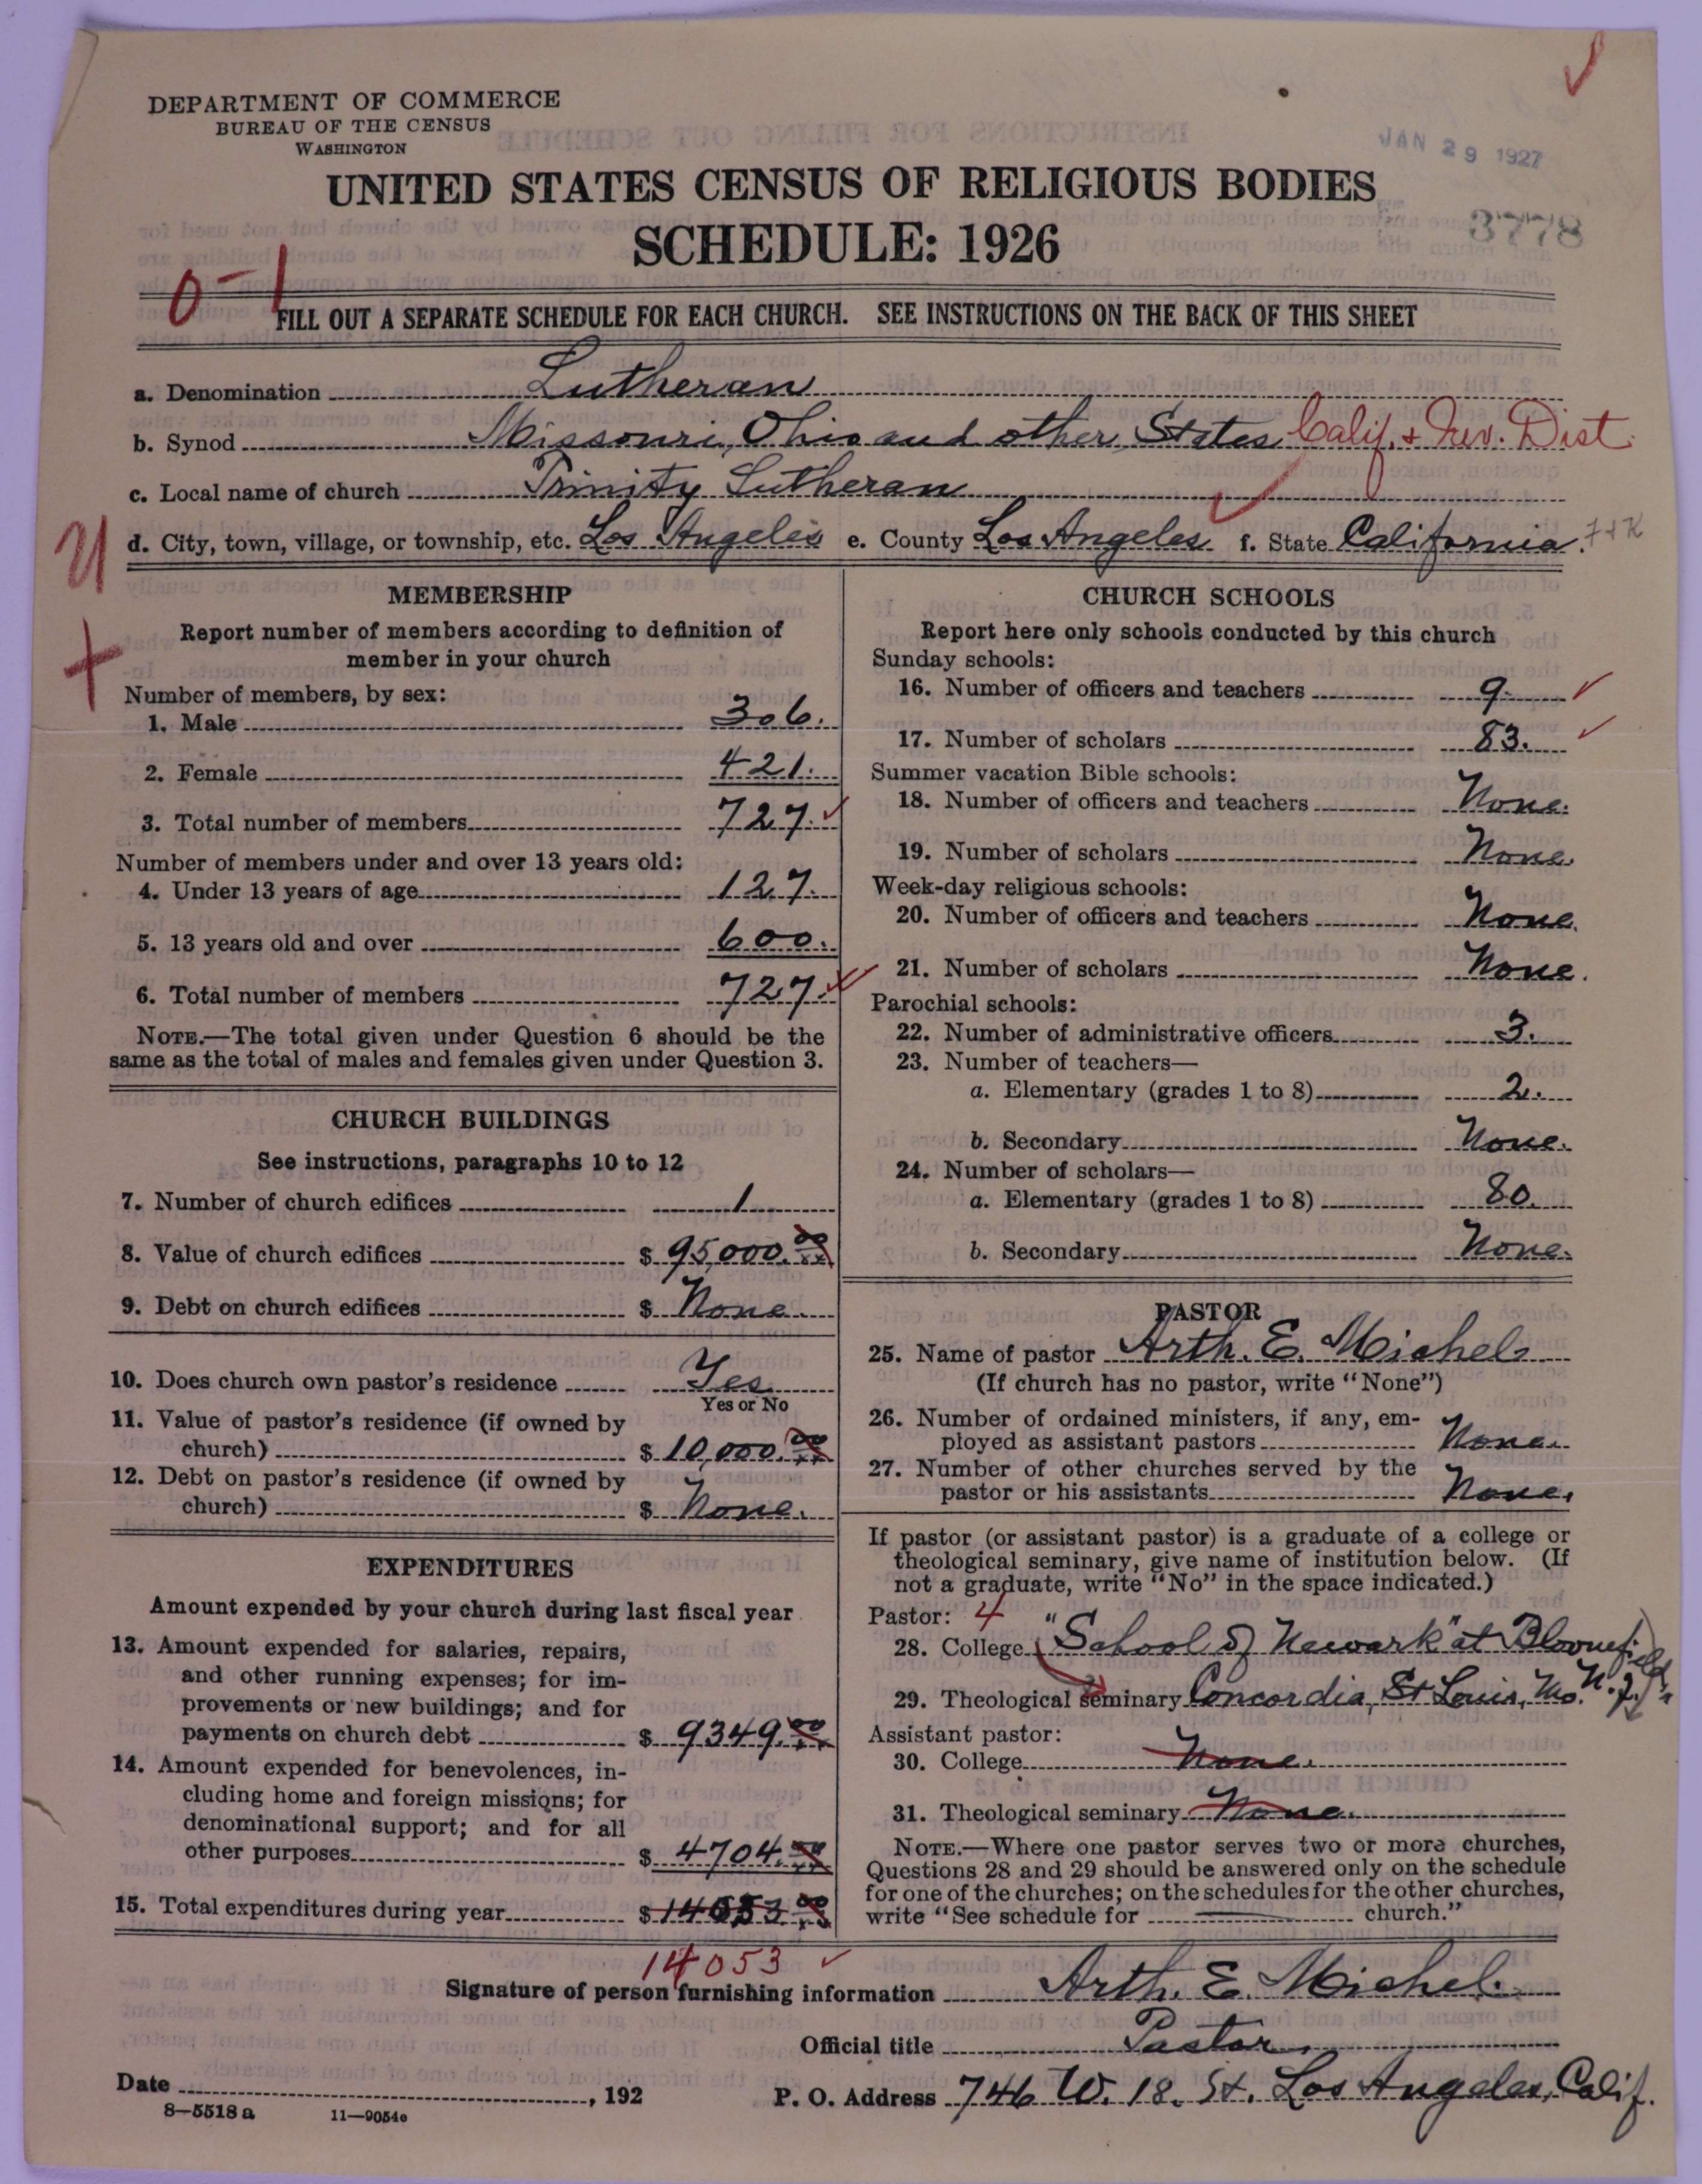 DEPARTMENT OF COMMERCE
BUREAU OF THE CENSUS
WASHINGTON
JAN 29 1927
UNITED STATES CENSUS OF RELIGIOUS BODIES
SCHEDULE: 1926
3778
0-1
FILL OUT A SEPARATE SCHEDULE FOR EACH CHURCH. SEE INSTRUCTIONS ON THE BACK OF THIS SHEET
a. Denomination Lutheran
b. Synod Missouri, Ohio and other States Calif. + Nev. Dist.
c. Local name of church Trinity Lutheran
d. City, town, village, or township, etc. Los Angeles e. County Los Angeles f. State California.
MEMBERSHIP
Report number of members according to definition of
member in your church
Number of members, by sex:
1. Male 306.
2. Female 421.
3. Total number of members 727.
Number of members under and over 13 years old:
4. Under 13 years of age 127.
5. 13 years old and over 600.
6. Total number of members 727.
NOTE.—The total given under Question 6 should be the
same as the total of males and females given under Question 3.
CHURCH BUILDINGS
See instructions, paragraphs 10 to 12
7. Number of church edifices 1
8. Value of church edifices $ 95,000.00
9. Debt on church edifices $ None.
10. Does church own pastor's residence Yes
Yes or No
11. Value of pastor's residence (if owned by
church) $ 10,000.00
12. Debt on pastor's residence (if owned by
church) $ None.
EXPENDITURES
Amount expended by your church during last fiscal year
13. Amount expended for salaries, repairs,
and other running expenses; for im-
provements or new buildings; and for
payments on church debt $ 9349.00
14. Amount expended for benevolences, in-
cluding home and foreign missions; for
denominational support; and for all
other purposes $ 4704.00
15. Total expenditures during year $ 14053.00
14053
CHURCH SCHOOLS
Report here only schools conducted by this church
Sunday schools:
16. Number of officers and teachers 9.
17. Number of scholars 83.
Summer vacation Bible schools:
18. Number of officers and teachers None.
19. Number of scholars None.
Week-day religious schools:
20. Number of officers and teachers None.
21. Number of scholars None.
Parochial schools:
22. Number of administrative officers 3.
23. Number of teachers—
a. Elementary (grades 1 to 8) 2.
b. Secondary None.
24. Number of scholars—
a. Elementary (grades 1 to 8) 80.
b. Secondary None.
PASTOR
25. Name of pastor Arth. E. Michel
(If church has no pastor, write "None")
26. Number of ordained ministers, if any, em-
ployed as assistant pastors None.
27. Number of other churches served by the
pastor or his assistants None.
If pastor (or assistant pastor) is a graduate of a college or
theological seminary, give name of institution below. (If
not a graduate, write "No" in the space indicated.)
Pastor: 4
28. College "School of Newark" at Bloomfield, N.J.
29. Theological seminary Concordia, St Louis, Mo.
Assistant pastor:
30. College None.
31. Theological seminary None.
NOTE.—Where one pastor serves two or more churches,
Questions 28 and 29 should be answered only on the schedule
for one of the churches; on the schedules for the other churches,
write "See schedule for church."
Signature of person furnishing information Arth. E. Michel.
Official title Pastor.
Date , 192
P. O. Address 746 W. 18. St. Los Angeles, Calif.
8—5518 a 11—9054c